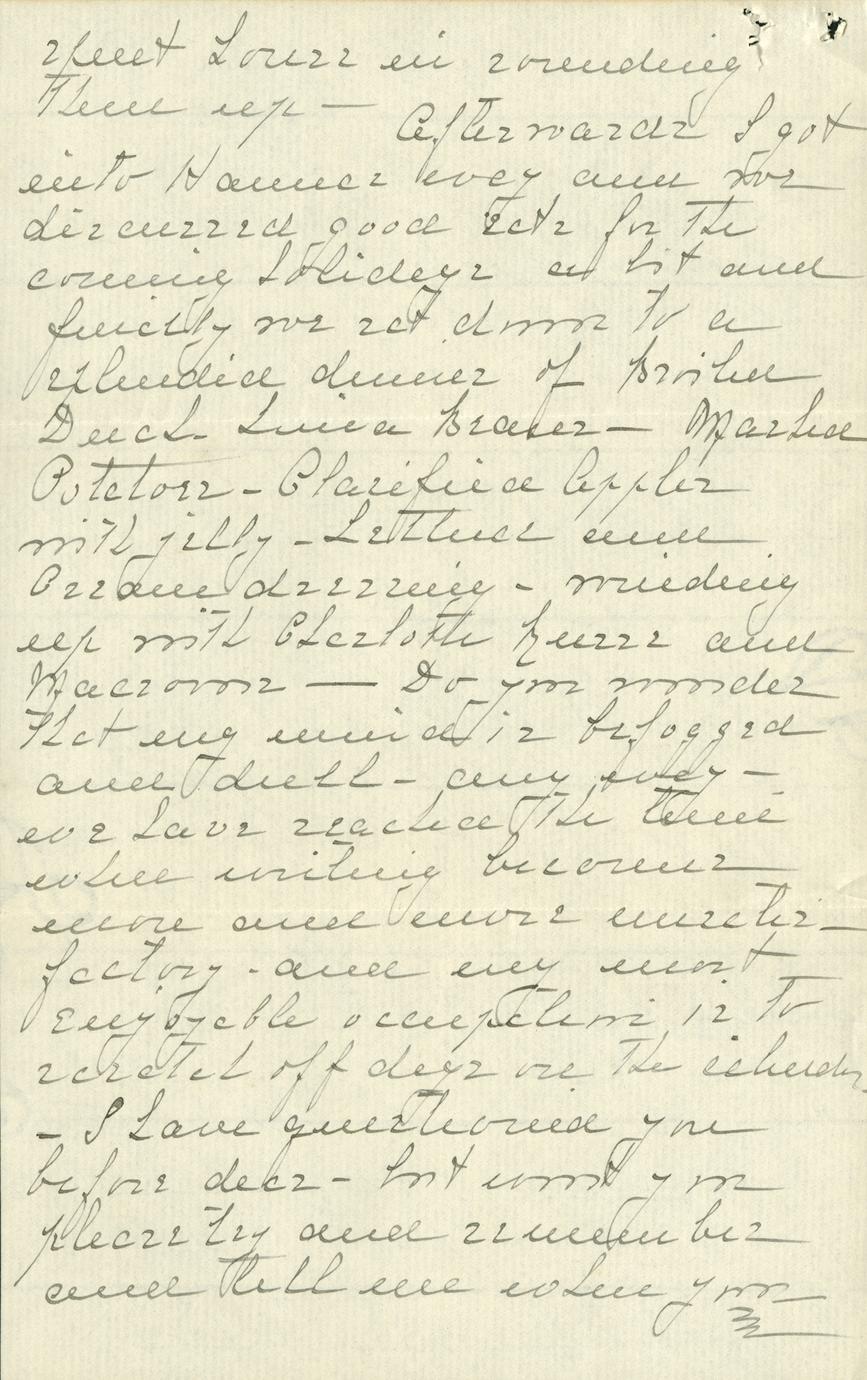 spent hours in rounding
them up —
Afterwards I got
into Hannes way and we
discussed good eats for the
coming holidays a bit and
finally we sat down to a
splendid dinner of Broiled
Duck - Lima Beans — Mashed
Potatoes - Clarified Apples
with jelly - Lettuce and
Cream dressing - winding
up with Charlotte Russe and
Macroons — Do you wonder
that my mind is befogged
and dull - any way -
we have reached the time
when writing becomes
more and more unsatis-
factory - and my most
Enjoyable occupation is to
scratch off days on the calendar
- I have questioned you
before dear - but wont you
please try and remember
and tell me when your